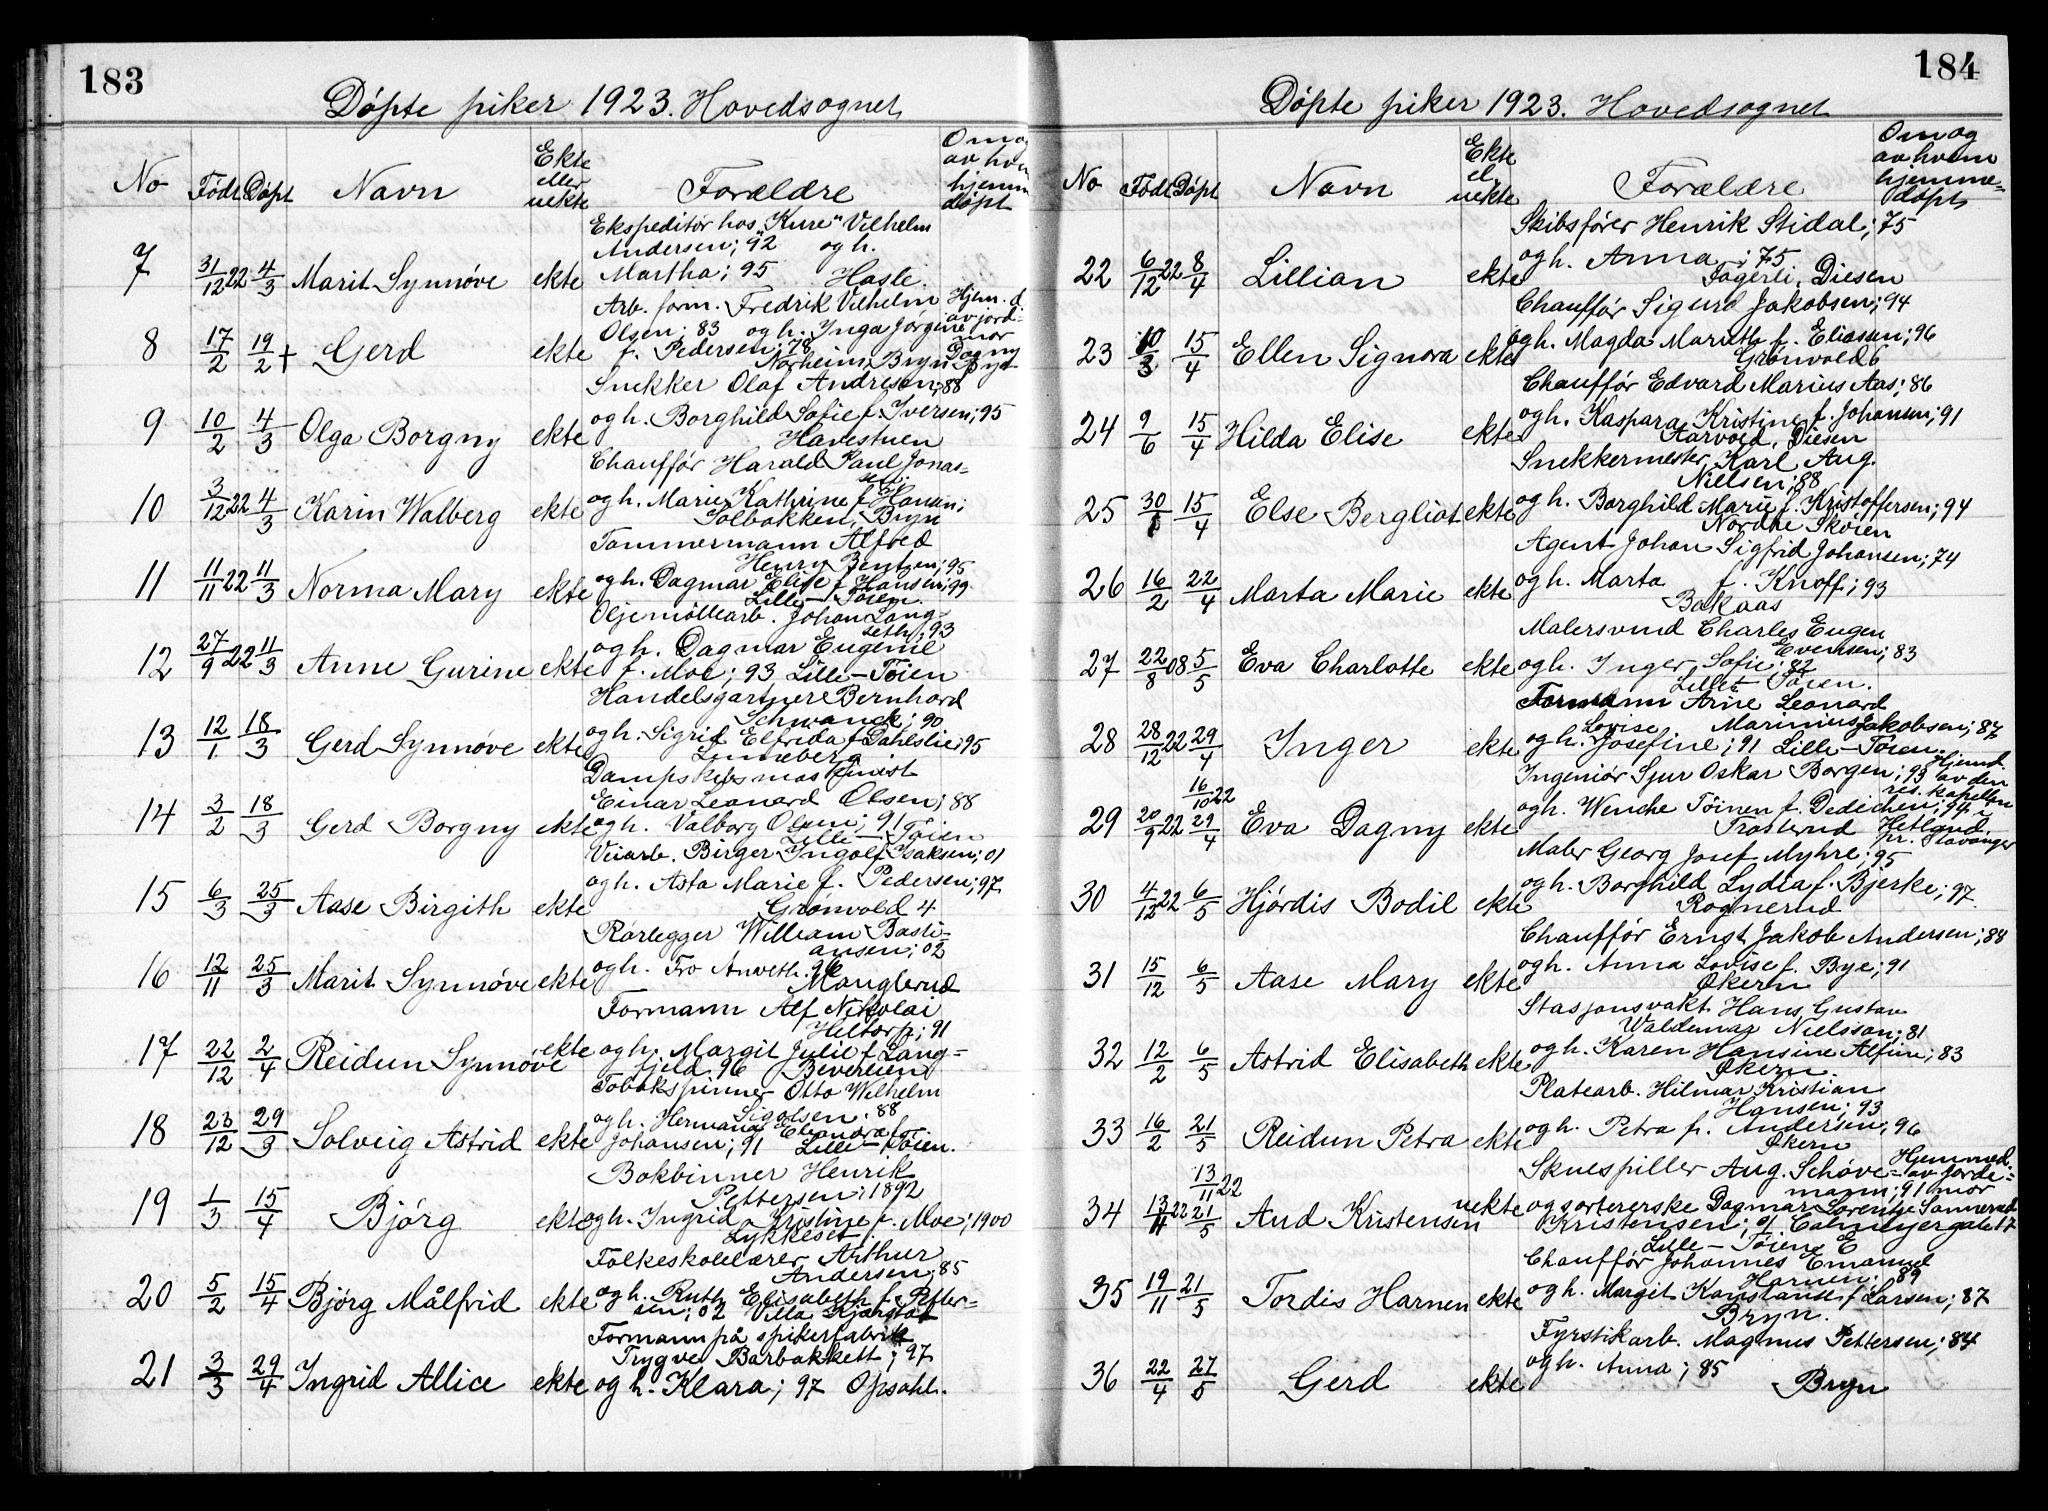 183
Døpte piker 1923. Hovedsognet
No Født Døpt Navn Ekte eller uekte Forældre Om og av hvem hjemmedøpt
Ekspeditør hos "Kure" Vilhelm
Andersen; 92 og h.
7 31/12 22 4/3 Marit Synnøve ekte Martha; 95 Hasle.
Arb. form. Fredrik Vilhelm Hjem. d.
Olsen; 83 og h. Inga Jørgine av jordi-
8 17/2 19/2 + Gerd ekte f. Pedersen; 78 mor
Norheim, Bryn Dagny
Snekker Olaf Andresen; 88
9 10/2 4/3 Olga Borgny ekte og h. Borghild Sofie f. Iversen; 95
Havestuen
Chauffør Harald Paul Jonas-
sen;
10 3/12 22 4/3 Karin Walberg ekte og h. Marie Kathrine f. Hansen;
Solbakken, Bryn
Tømmermann Alfred
Henry Bentsen; 95
11 11/11 22 11/3 Norma Mary ekte og h. Dagmar Elise f. Hansen; 99
Lille-Tøien.
Oljemøllearb. Johan Lang-
seth; 93
12 27/9 22 11/3 Anne Gurine ekte og h. Dagmar Eugenie
f. Moe; 93 Lille-Tøien
Handelsgartner Bernhard
Schwanck; 90
13 12/1 18/3 Gerd Synnøve ekte og h. Sigrid Elfrida f. Dahlslie; 95
Linneberg
Dampskibsmaskinist
Einar Leonard Olsen; 88
14 3/2 18/3 Gerd Borgny ekte og h. Valborg Olsen; 91
Lille-Tøien
Veiarb. Birger Ingolf Isaksen; 01
15 6/3 25/3 Aase Birgith ekte og h. Asta Marie f. Pedersen; 97
Grønvold 4
Rørlegger William Basti-
ansen; 02
16 12/11 25/3 Marit Synnøve ekte og h. Fro Anveth. 96
Manglerud
Formann Alf Nikolai
Heltorp; 91
17 22/12 2/4 Reidun Synnøve ekte og h. Margit Julie f. Lang-
fjeld 96 Beverveien
Tobakspinner Otto Wilhelm
Sigolsen. 88
18 23/12 29/3 Solveig Astrid ekte og h. Hermana Eleonora f.
Johansen; 91 Lille Tøien.
Bokbinner Henrik
Pettersen; 1892
19 1/3 15/4 Bjørg ekte og h. Ingrid Kristine f. Moe; 1900
Lykkeset
Folkeskolelærer Arthur
Andersen; 85
20 5/2 15/4 Bjørg Målfrid ekte og h. Ruth Elisabeth f. Petter-
sen; 02 Villa Kjørstad
Formann på spikerfabrik
Trygve Barbakkett; 97
21 3/3 29/4 Ingrid Allice ekte og h. Klara; 97 Opsahl.
184
Døpte piker 1923. Hovedsognet
No Født Døpt Navn Ekte el. uekte Forældre Om og av hvem hjemme-døpt
Skibsfører Henrik Stidal; 75
22 6/12 22 8/4 Lillian ekte og h. Anna; 75
Fagerli, Diesen
Chauffør Sigurd Jakobsen; 94
23 10/3 15/4 Ellen Signora ekte og h. Magda Marieth f. Eliassen; 96
Grønvold 6
Chauffør Edvard Marius Aas; 86
24 9/6 15/4 Hilda Elise ekte og h. Kaspara Kristine f. Johansen; 91
Aarvold, Diesen
Snekkermester Karl Aug.
Nielsen; 88
25 30/1 15/4 Else Bergliot ekte og h. Borghild Marie f. Kristoffersen; 94
Nordre Skøien
Agent Johan Sigfrid Johansen; 74
26 16/2 22/4 Marta Marie ekte og h. Marta f. Knoff; 93
Bakaas
Malersvend Charles Eugen
Evensen; 83
27 22/8 08 5/5 Eva Charlotte ekte og h. Inger Sofie; 82
Lille-Tøien.
Formann Arne Leonard
Marinius Jakobsen; 87
28 28/12 22 29/4 Inger ekte og h. Lovise Josefine; 91 Lille-Tøien.
Ingeniør Sjur Oskar Borgen; 93 Hjemd. av den
16/10 22 res. kapellan
29 20/9 22 29/4 Eva Dagny ekte og h. Wenche Tøinen f. Dedichen; 94 i
Trosterud Hetland
pr. Stavanger
Maler Georg Josef Myhre; 95
30 4/12 22 6/5 Hjørdis Bodil ekte og h. Borghild Lydia f. Bjerke; 97.
Rognerud
Chauffør Ernst Jakob Andersen; 88
31 15/12 6/5 Aase Mary ekte og h. Anna Lovise f. Bye; 91
Økern
Stasjonsvakt Hans Gustav
Waldemar Nielsson; 81
32 12/2 6/5 Astrid Elisabeth ekte og h. Karen Hansine Alfine; 83
Økern.
Platearb. Hilmar Kristian
Hansen; 93
33 16/2 21/5 Reidun Petra ekte og h. Petra f. Andersen; 96
Økern
Skuespiller Aug. Schøne- Hjemmed.
13/11 22 mann; 91 av jorde-mor
34 13/11 22 21/5 Aud Kristensen uekte og sortererske Dagmar Lorentze Sannerud
Kristensen; Calmeyergate 17
Lille-Tøien E
Chauffør Johannes Emanuel
Harnen; 89
35 19/11 21/5 Tordis Harnen ekte og h. Margit Konstanse f. Larsen; 87
Bryn.
Fyrstikarb. Magnus Pettersen; 84
36 22/4 27/5 Gerd ekte og h. Anna; 85 Bryn